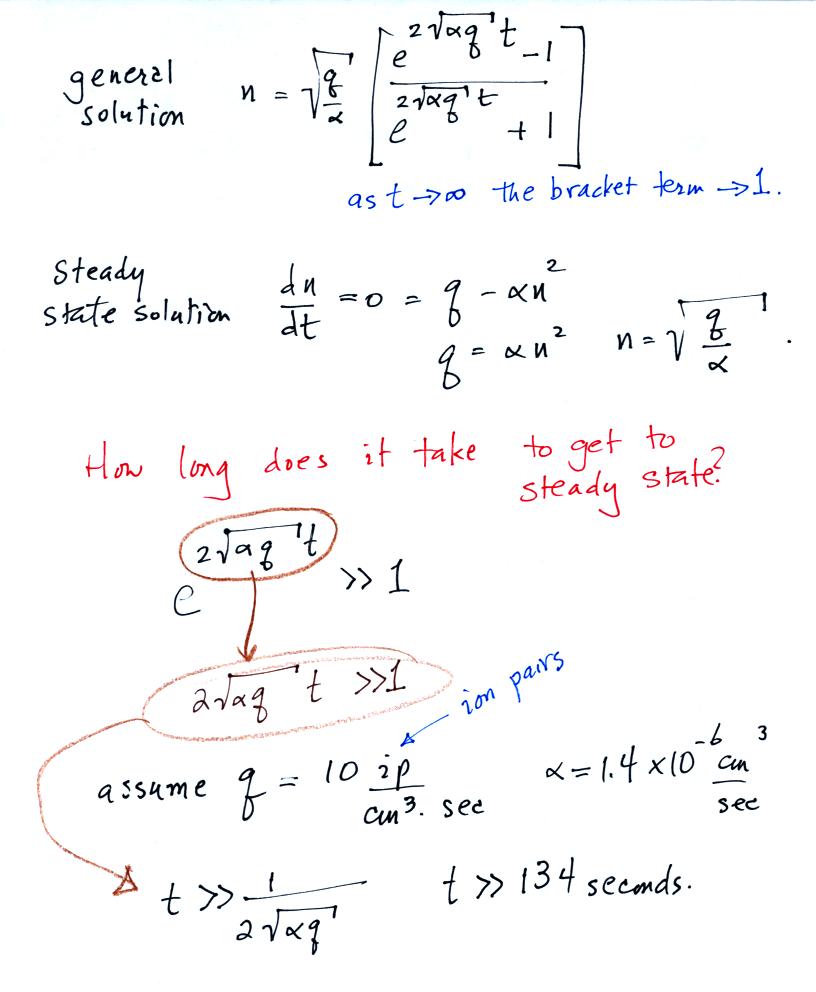 general solution n = √(q/α) [ (e^(2√(αq) t) − 1) / (e^(2√(αq) t) + 1) ]
as t → ∞ the bracket term → 1.
Steady state solution dn/dt = 0 = q − αn²
q = αn² n = √(q/α) .
How long does it take to get to steady state?
e^(2√(αq) t) >> 1
2√(αq) t >> 1
ion pairs
assume q = 10 ip/(cm³· sec) α = 1.4 × 10⁻⁶ cm³/sec
t >> 1/(2√(αq)) t >> 134 seconds.